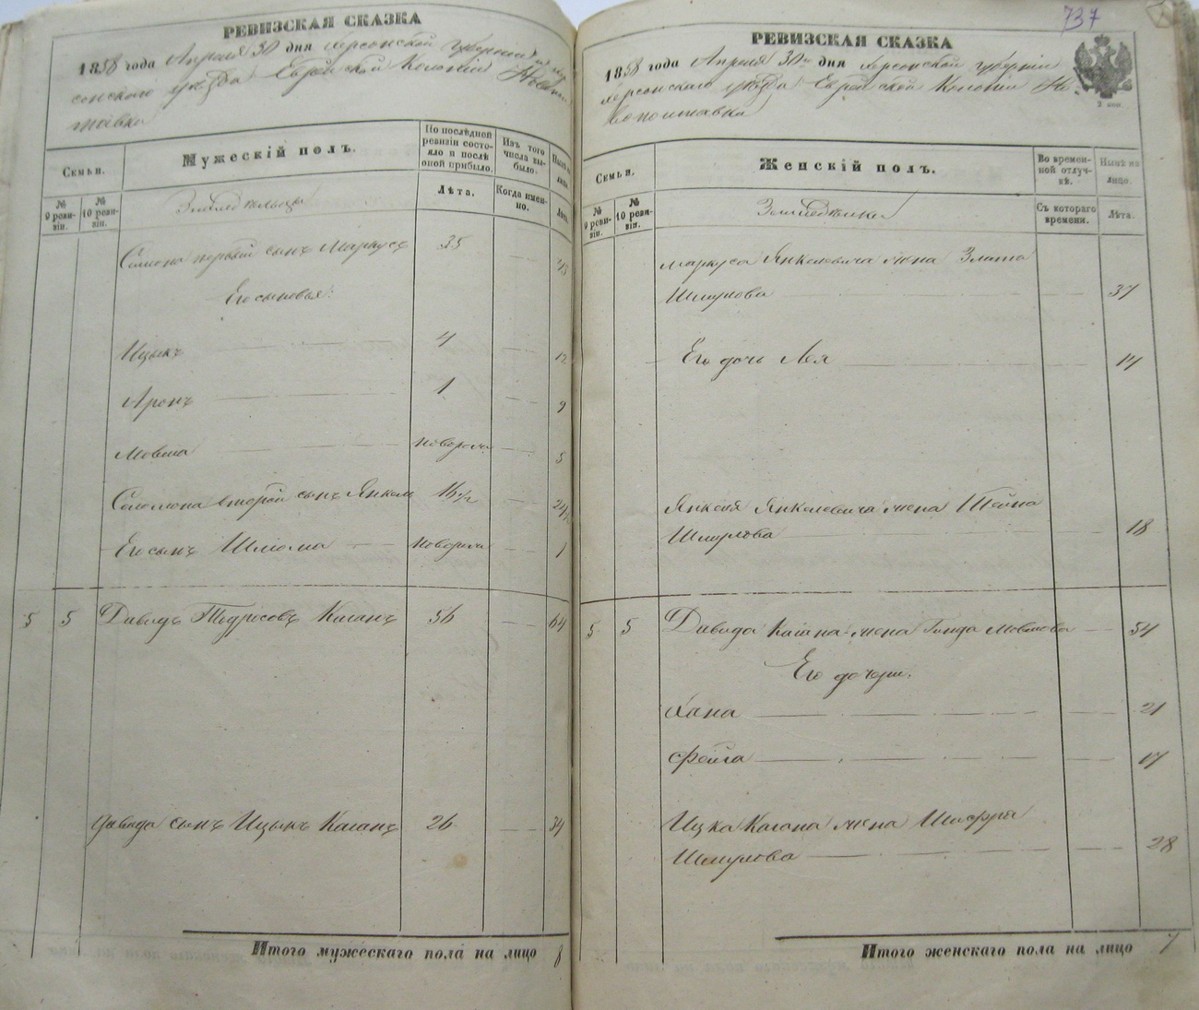 РЕВИЗСКАЯ СКАЗКА
1858 года Апреля 30 дня Херсонской губернии и Хер
сонскаго уезда Еврейской Колоніи Новопол
тавка
Семьи.
Мужескій полъ.
По послѣдней ревизіи состояло и послѣ оной прибыло.
Изъ того числа выбыло.
№ 9 ревизіи.
№ 10 ревизіи.
Лѣта.
Когда именно.
Лѣта.
первый сынъ Маркусъ 35 43
Его сыновья:
Ицыкъ 4 12
Аронъ 1 9
Мовша новорож 5
Соломона второй сынъ Янкель 16 1/2 24 1/2
Его сынъ Шліома новорож 1
5 5 Давидъ Тодросовъ Каганъ 56 64
Давида сынъ Ицыкъ Каганъ 26 34
Итого мужескаго пола на лицо 8
737
РЕВИЗСКАЯ СКАЗКА
1858 года Апреля 30 дня Херсонской губерніи
Херсонскаго уезда Еврейской Колоніи Но
вополтавка
2 коп
Семьи.
Женскій полъ.
Во временной отлучкѣ.
Нынѣ на лицо.
№ 9 ревизіи.
№ 10 ревизіи.
Съ котораго времени.
Лѣта.
Маркуса Янкелевича жена Злата
Шмулова 37
Его дочь Лея 14
Янкеля Янкелевича жена Шейна
Шмулова 18
5 5 Давида Кагана жена Гинда Мовшова 54
Его дочери.
Хана 21
Фейга 17
Ицка Кагана жена Шифра
Шмулова 28
Итого женскаго пола на лицо 7